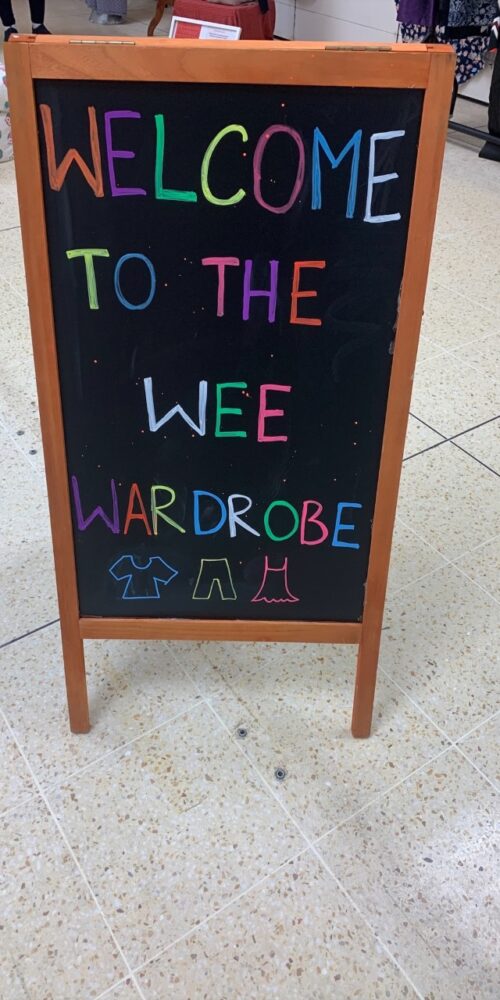 WELCOME
TO THE
WEE
WARDROBE